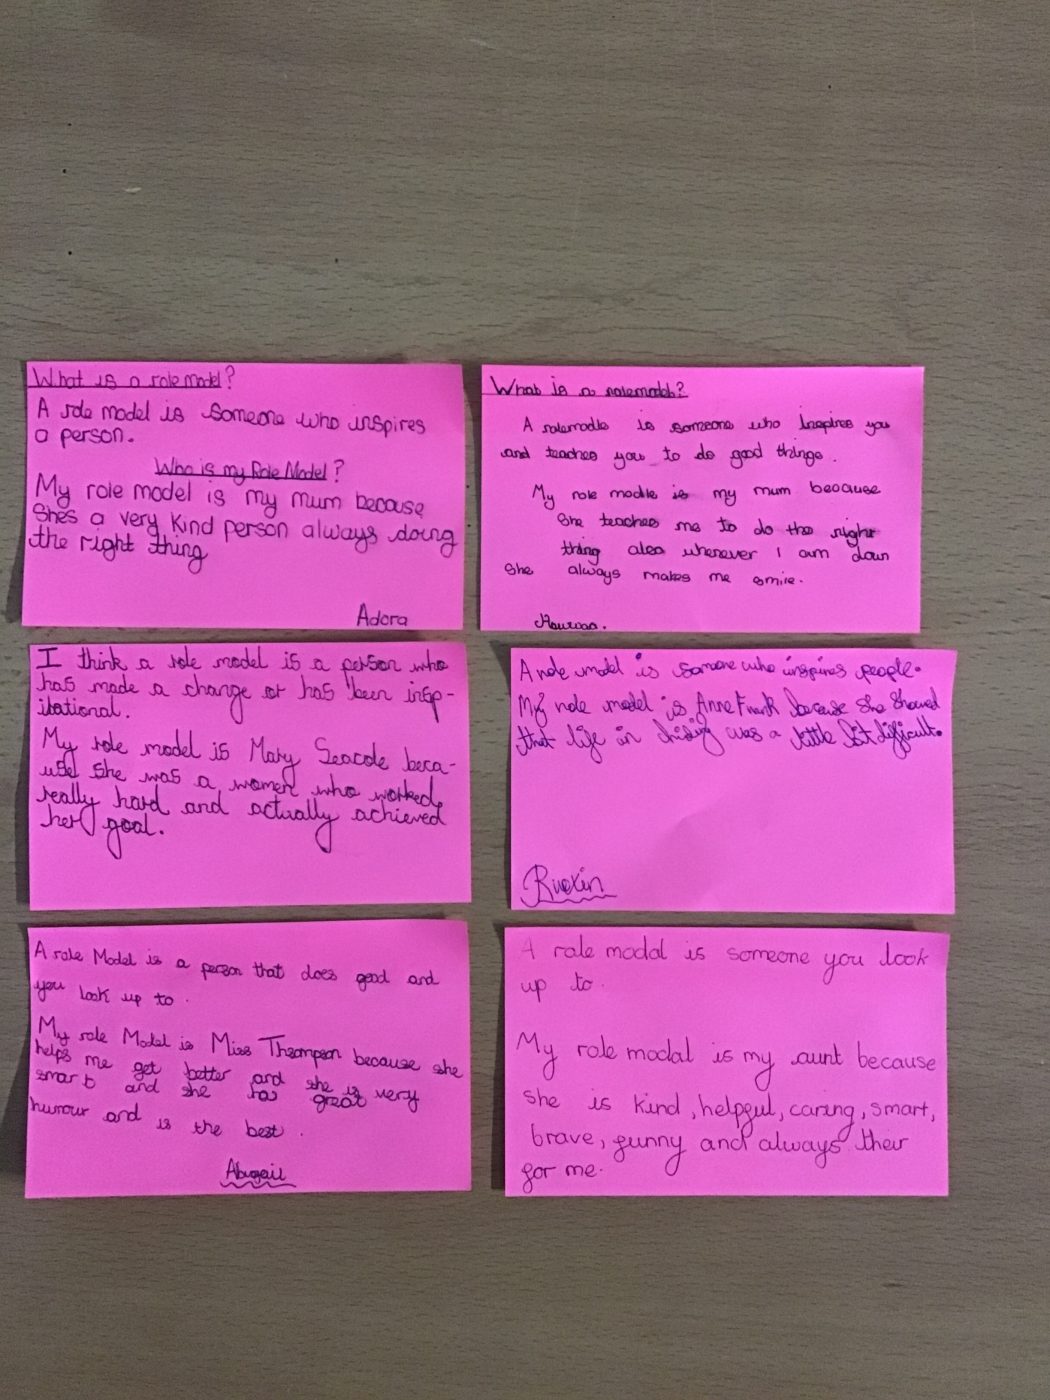 What is a role model?
A role model is someone who inspires
a person.
Who is my Role Model?
My role model is my mum because
Shes a very kind person always doing
the right thing
Adora
What is a rolemodel?
A rolemodle is someone who inspires you
and teaches you to do good things.
My role modle is my mum because
She teaches me to do the right
thing also whenever I am down
She always makes me smile.
I think a role model is a person who
has made a change or has been insp-
irational.
My role model is Mary Seacole beca-
use she was a women who worked
really hard and actually achieved
her goal.
A role model is somone who inspires people.
My role model is Anne Frank because she showed
that life in hiding was a little bit difficult.
A role Model is a person that does good and
you look up to.
My role Model is Miss Thompson because she
helps me get better and she is very
smart and she has great
humour and is the best.
Abigail
A role modal is someone you look
up to.
My role modal is my aunt because
she is kind, helpful, caring, smart,
brave, funny and always their
for me.